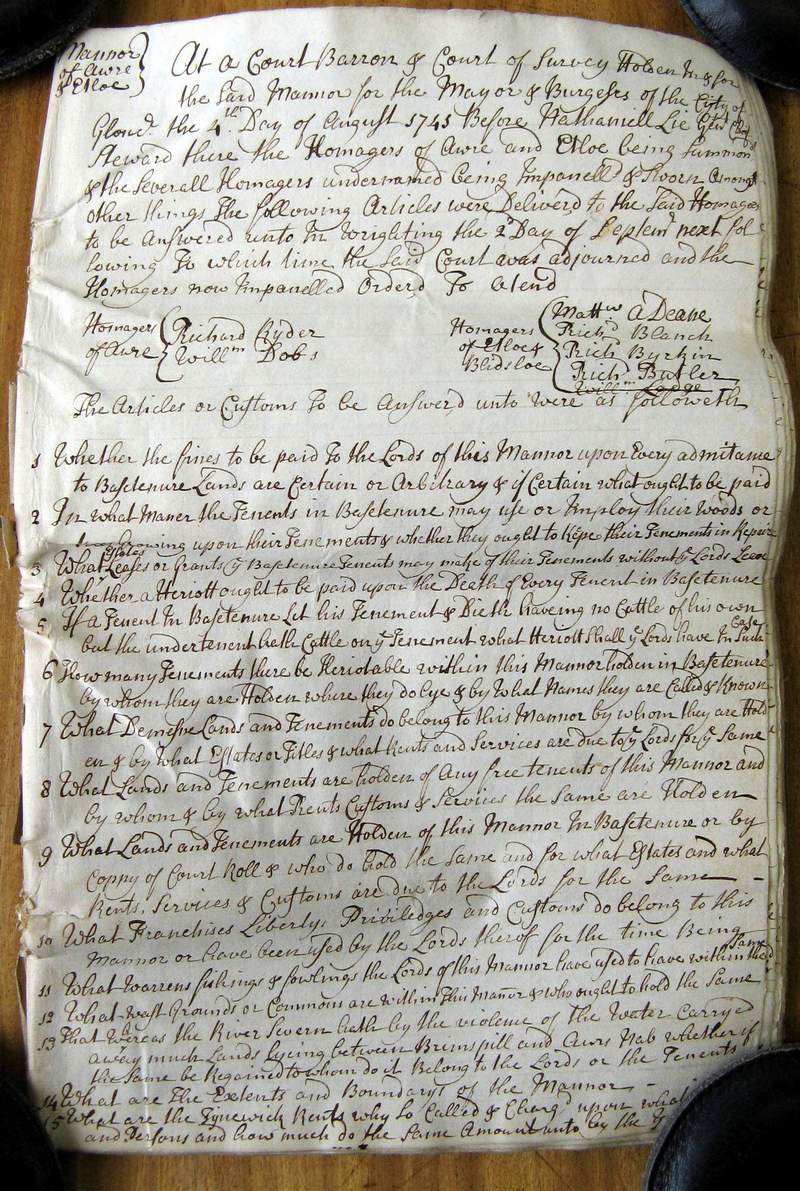 Mannor
of Awre
& Etloe
At a Court Barron & Court of Survey Holden In & for
the said Mannor for the Mayor & Burgeses of the City of
Gloucr. the 4th Day of August 1745 Before Nathaniell Lye Gent Chef
Steward there the Homagers of Awre and Etloe being summon'd
& the Severall Homagers undernamed being Impanell'd & Sworn Amongt
other things The following Articles were Deliverd to the Said Homagers
to be Answered unto In Wrighting the 2d Day of Septemr next fol
lowing To which time the Said Court was adjourned and the
Homagers now Impanelled Orderd To Atend
Homagers
of Awre
Richard Ryder
Willm Dobs
Homagers
of Etloe &
Blidsloe
Matthw ADeane
Richd Blanch
Richd Byrkin
Richd Butler
Willm Lodge
The Articles or Customs To be Answerd unto were as followeth
1 Whether the fines to be paid To the Lords of this Mannor upon Every admitance
to Basetenure Lands are Certain or Arbitrary & if Certain what ought to be paid
2 In what Maner the Tenents in Basetenure may use or Imploy their Woods or
growing upon their Tenements & whether they ought to Kepe their Tenements in Repair
3 What Estates Leases or Grants ye Basetenure Tenents may make of their Tenements without ye Lords Leeve
4 Whether a Heriott ought to be paid upon the Death of Every Tenent in Basetenure
5 If a Tenent In Basetenure Let his Tenement & Dieth haveing no Cattle of his own
but the undertenent hath Cattle on ye Tenement what Heriott Shall ye Lords have In Such Case
6 How many Tenements there be Heriotable within this Mannor holden in Basetenure
by whom they are Holden where they do Lye & by What Names they are Called & Known
7 What Demesne Lands and Tenements do belong to this Mannor by whom they are Hold
en & by What Estates or Titles & what Rents and Services are due to ye Lords for ye Same
8 What Lands and Tenements are holden of Any free tenents of this Mannor and
by whom & by what Rents Customs & Services the Same are Holden
9 What Lands and Tenements are Holden of this Mannor In Basetenure or by
Coppy of Court Roll & who do hold the Same and for what Estates and what
Rents, Services & Customs are due to the Lords for the Same
10 What Franchises Liberty, Priviledges and Customs do belong to this
Mannor or have been used by the Lords therof for the time Being
11 What Warrens fishings & fowlings the Lords of this Mannor have used to have within the Same
12 What wast Grounds or Commons are within This Manor & who ought to hold the Same
13 That Whereas the River Severn hath by the violence of the Water Carryed
away much Lands lyeing between Brimspill and Awrs Nab whether if
the Same be Regained to whom do it Belong to the Lords or the Tenents
14 What are The Extents and Boundarys of the Mannor
15 What are the Tynewick Rents why So Called & Charg'd upon what
and Persons and how much do the Same Amount unto by the